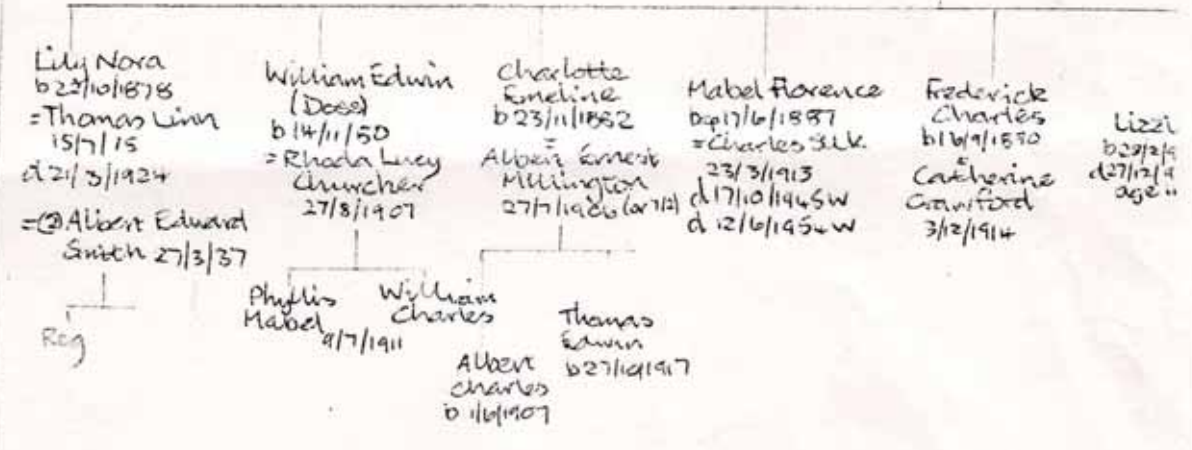 Lily Nora
b 22/10/1878
= Thomas Linn
15/7/15
d 21/3/1924
= ② Albert Edward
Smith 27/3/37
Reg
William Edwin
(Dose)
b 14/11/80
= Rhoda Lucy
Churcher
27/8/1907
Phyllis
Mabel
9/7/1911
William
Charles
Charlotte
Emeline
b 23/11/1882
=
Albert Ernest
Millington
27/7/1906 (or 7/2)
Albert
Charles
b 1/6/1907
Thomas
Edwin
b 27/10/1917
Mabel Florence
bap 17/6/1887
= Charles Silk
23/3/1913
d 17/10/1945 W
d 12/6/1954 W
Frederick
Charles
b 16/9/1890
=
Catherine
Crawford
3/12/1914
Lizzi
b 28/2/9
d 27/12/9
age 11